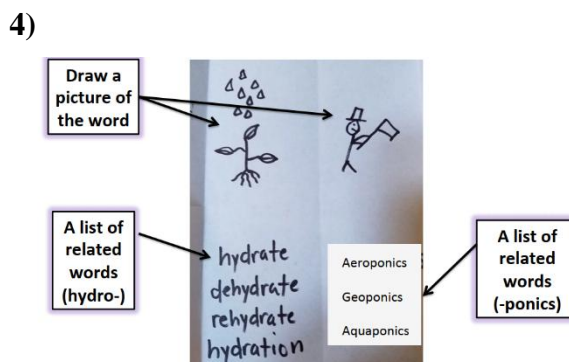 4)
Draw a
picture of
the word
A list of
related
words
(hydro-)
hydrate
dehydrate
rehydrate
hydration
Aeroponics
Geoponics
Aquaponics
A list of
related
words
(-ponics)